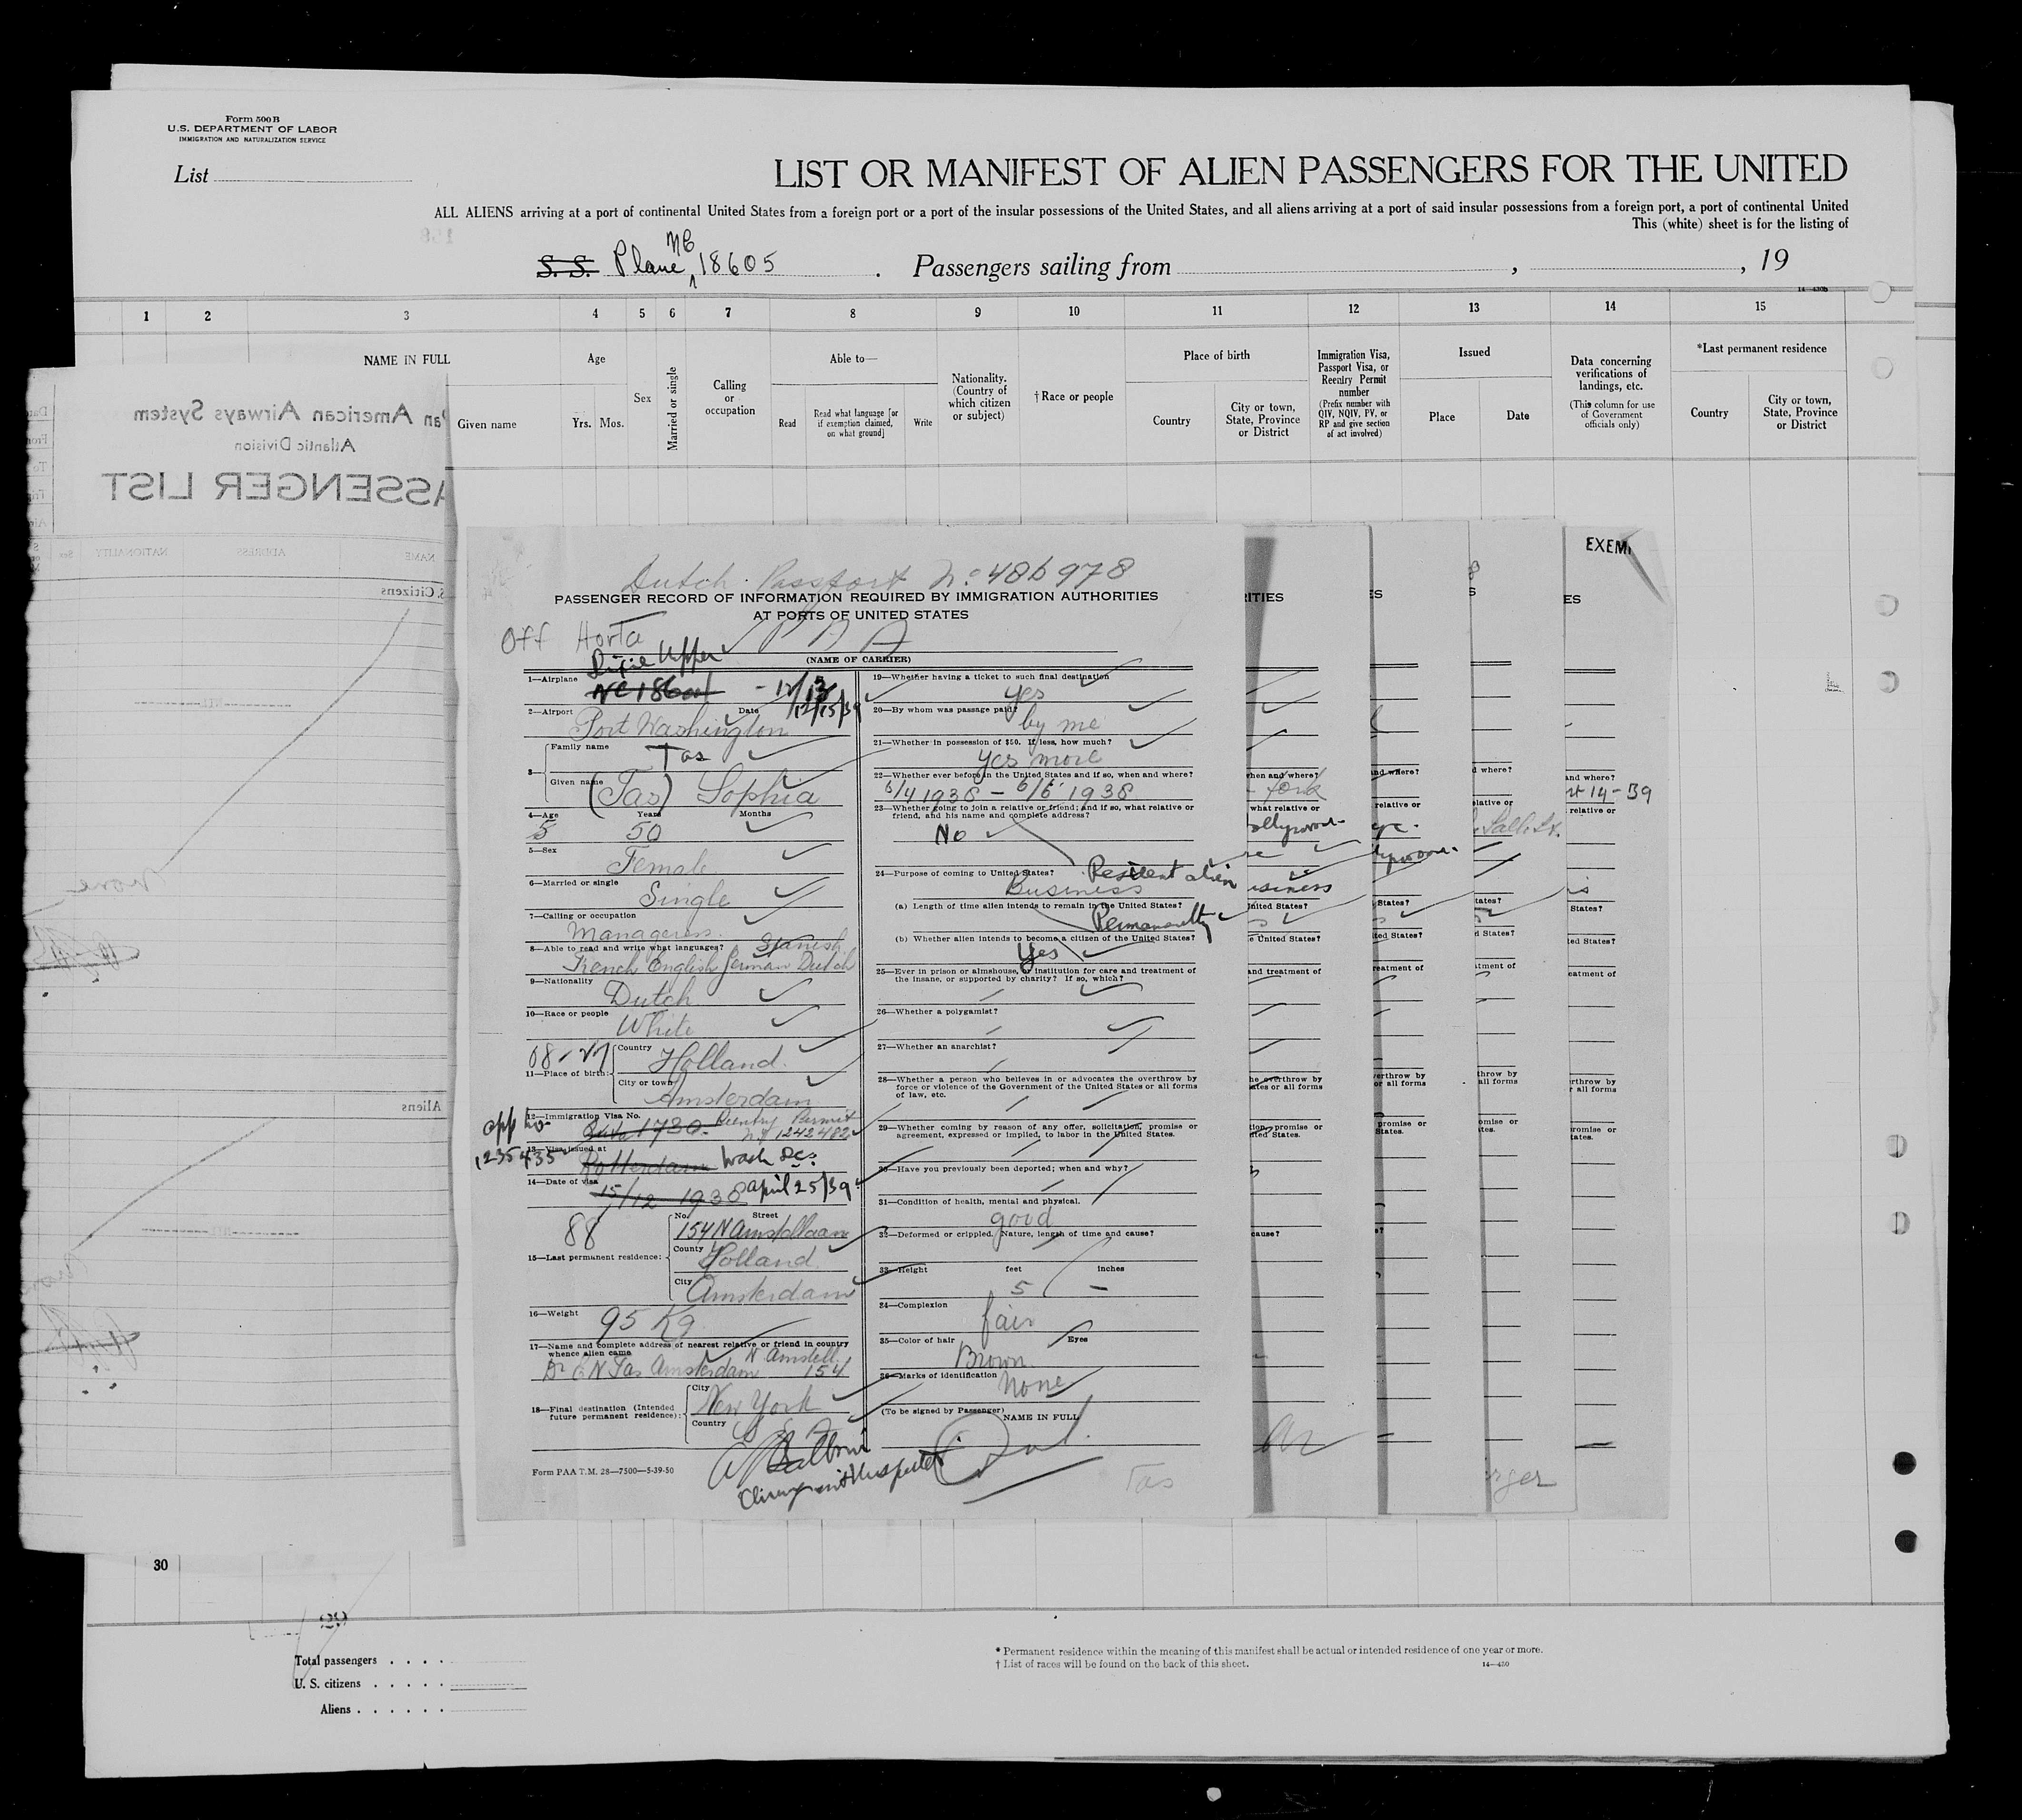 Form 500B
U.S. DEPARTMENT OF LABOR
IMMIGRATION AND NATURALIZATION SERVICE
List
LIST OR MANIFEST OF ALIEN PASSENGERS FOR THE UNITED
ALL ALIENS arriving at a port of continental United States from a foreign port or a port of the insular possessions of the United States, and all aliens arriving at a port of said insular possessions from a foreign port, a port of continental United
This (white) sheet is for the listing of
S. S. Plane NC 18605 . Passengers sailing from , , 19
1 2 3 4 5 6 7 8 9 10 11 12 13 14 15
NAME IN FULL
Given name
Age
Yrs. Mos.
Sex
Married or single
Calling or occupation
Able to—
Read
Read what language [or if exemption claimed, on what ground]
Write
Nationality. (Country of which citizen or subject)
† Race or people
Place of birth
Country
City or town, State, Province or District
Immigration Visa, Passport Visa, or Reentry Permit number
(Prefix number with QIV, NQIV, PV, or RP and give section of act involved)
Issued
Place
Date
Data concerning verifications of landings, etc.
(This column for use of Government officials only)
*Last permanent residence
Country
City or town, State, Province or District
Pan American Airways System
Atlantic Division
PASSENGER LIST
NAME ADDRESS NATIONALITY Sex
S. Citizens
Aliens
EXEM
Dutch Passport No 486978
PASSENGER RECORD OF INFORMATION REQUIRED BY IMMIGRATION AUTHORITIES
AT PORTS OF UNITED STATES
Off Horta
P A A
(NAME OF CARRIER)
Dixie Clipper
1—Airplane
2—Airport Date 12/15/39
Port Washington
3— Family name
Tas
Given name (Tas) Sophia
4—Age Years Months
50
5—Sex
Female
6—Married or single
Single
7—Calling or occupation
Manageress.
8—Able to read and write what languages? Spanish
French English German Dutch
9—Nationality
Dutch
10—Race or people
White
11—Place of birth: Country
Holland.
City or town
Amsterdam
12—Immigration Visa No. 1730 Reentry Permit
No 1242482
app no
1235435
13—Visa issued at
Rotterdam Wash D.C.
14—Date of visa
15/12 1938 april 25/39
88
15—Last permanent residence:
No. Street
154 N Amstellaan
County
Holland
City
Amsterdam
16—Weight
95 Kg
17—Name and complete address of nearest relative or friend in country
whence alien came N Amstell.
Tas Amsterdam 154
18—Final destination (Intended
future permanent residence):
City
New York
Country
Form PAA T.M. 28—7500—5-39-50
19—Whether having a ticket to such final destination
yes
20—By whom was passage paid?
by me
21—Whether in possession of $50. If less, how much?
yes more
22—Whether ever before in the United States and if so, when and where?
6/4 1938 – 6/6 1938
23—Whether going to join a relative or friend; and if so, what relative or
friend, and his name and complete address?
No
24—Purpose of coming to United States? Resident alien
Business
(a) Length of time alien intends to remain in the United States?
Permanently
(b) Whether alien intends to become a citizen of the United States?
Yes
25—Ever in prison or almshouse, or institution for care and treatment of
the insane, or supported by charity? If so, which?
26—Whether a polygamist?
27—Whether an anarchist?
28—Whether a person who believes in or advocates the overthrow by
force or violence of the Government of the United States or all forms
of law, etc.
29—Whether coming by reason of any offer, solicitation, promise or
agreement, expressed or implied, to labor in the United States.
30—Have you previously been deported; when and why?
31—Condition of health, mental and physical.
good
32—Deformed or crippled. Nature, length of time and cause?
33—Height feet inches
5 –
34—Complexion
fair
35—Color of hair Eyes
Brown
36—Marks of identification
none
(To be signed by Passenger)
NAME IN FULL
Tas
30
Total passengers . . . .
U. S. citizens . . . . .
Aliens . . . . . .
* Permanent residence within the meaning of this manifest shall be actual or intended residence of one year or more.
† List of races will be found on the back of this sheet.
14—430